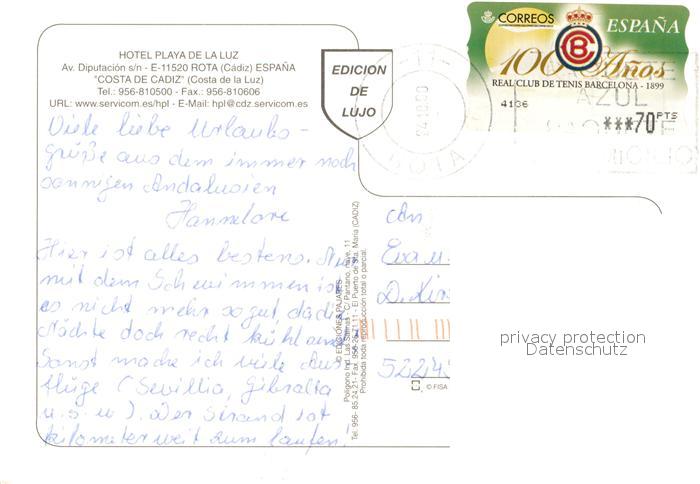 HOTEL PLAYA DE LA LUZ
Av. Diputación s/n - E-11520 ROTA (Cádiz) ESPAÑA
"COSTA DE CADIZ" (Costa de la Luz)
Tel.: 956-810500 - Fax.: 956-810606
URL: www.servicom.es/hpl - E-Mail: hpl@cdz.servicom.es
EDICION
DE
LUJO
CORREOS
ESPAÑA
100 Años
REAL CLUB DE TENIS BARCELONA - 1899
4136
***70 PTS
AZUL
ROTA
Viele liebe Urlaubs-
grüße aus dem immer noch
sonnigen Andalusien
Hannelore
Hier ist alles bestens. Nur
mit dem Schwimmen ist
es nicht mehr so gut, da die
Nächte doch recht kühl
Sonst mache ich viele Aus
flüge (Sevillia, Gibralta
u.s.w). Der Strand ist
kilometerweit zum laufen!
© EDICIONES PAJARES
Poligono Ind. Las Salinas - C/ Pantano, nave, 11
Tel. 956- 85.24.21 - El Puerto de Sta. María (CADIZ)
Prohibida toda reproducción total o parcial.
An
Eva u.
D.
5224
© FISA
privacy protection
Datenschutz